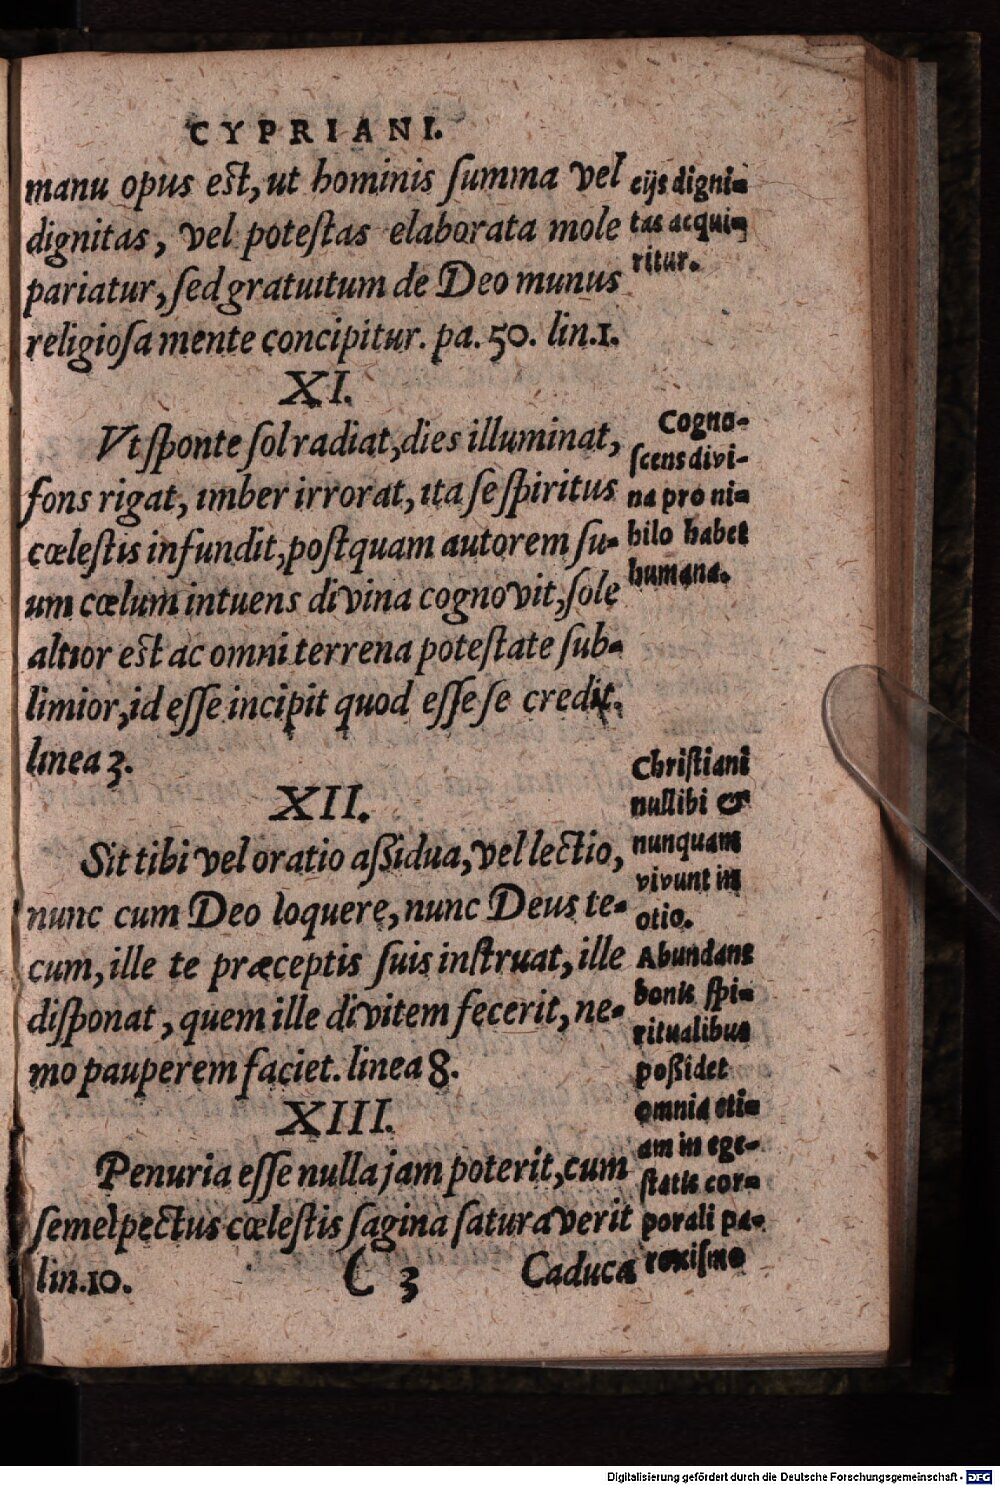 CYPRIANI.
manu opus est, ut hominis summa vel
dignitas, vel potestas elaborata mole
pariatur, sed gratuitum de Deo munus
religiosa mente concipitur. pa. 50. lin. 1.
eijs digni=
tas acqui=
ritur.
XI.
Vt sponte sol radiat, dies illuminat,
fons rigat, imber irrorat, ita se spiritus
cœlestis infundit, postquam autorem su=
um cœlum intuens divina cognovit, sole
altior est ac omni terrena potestate sub=
limior, id esse incipit quod esse se credit.
linea 3.
Cogno-
scens divi-
na pro ni=
hilo habet
humana.
XII.
Sit tibi vel oratio assidua, vel lectio,
nunc cum Deo loquere, nunc Deus te=
cum, ille te præceptis suis instruat, ille
disponat, quem ille divitem fecerit, ne=
mo pauperem faciet. linea 8.
Christiani
nullibi &
nunquam
vivunt in
otio.
XIII.
Penuria esse nulla jam poterit, cum
semel pectus cœlestis sagina saturaverit
lin. 10.
Abundans
bonis spi=
ritualibus
possidet
omnia eti=
am in ege=
statis cor=
porali pa=
roxismo
C 3
Caduca
Digitalisierung gefördert durch die Deutsche Forschungsgemeinschaft - DFG